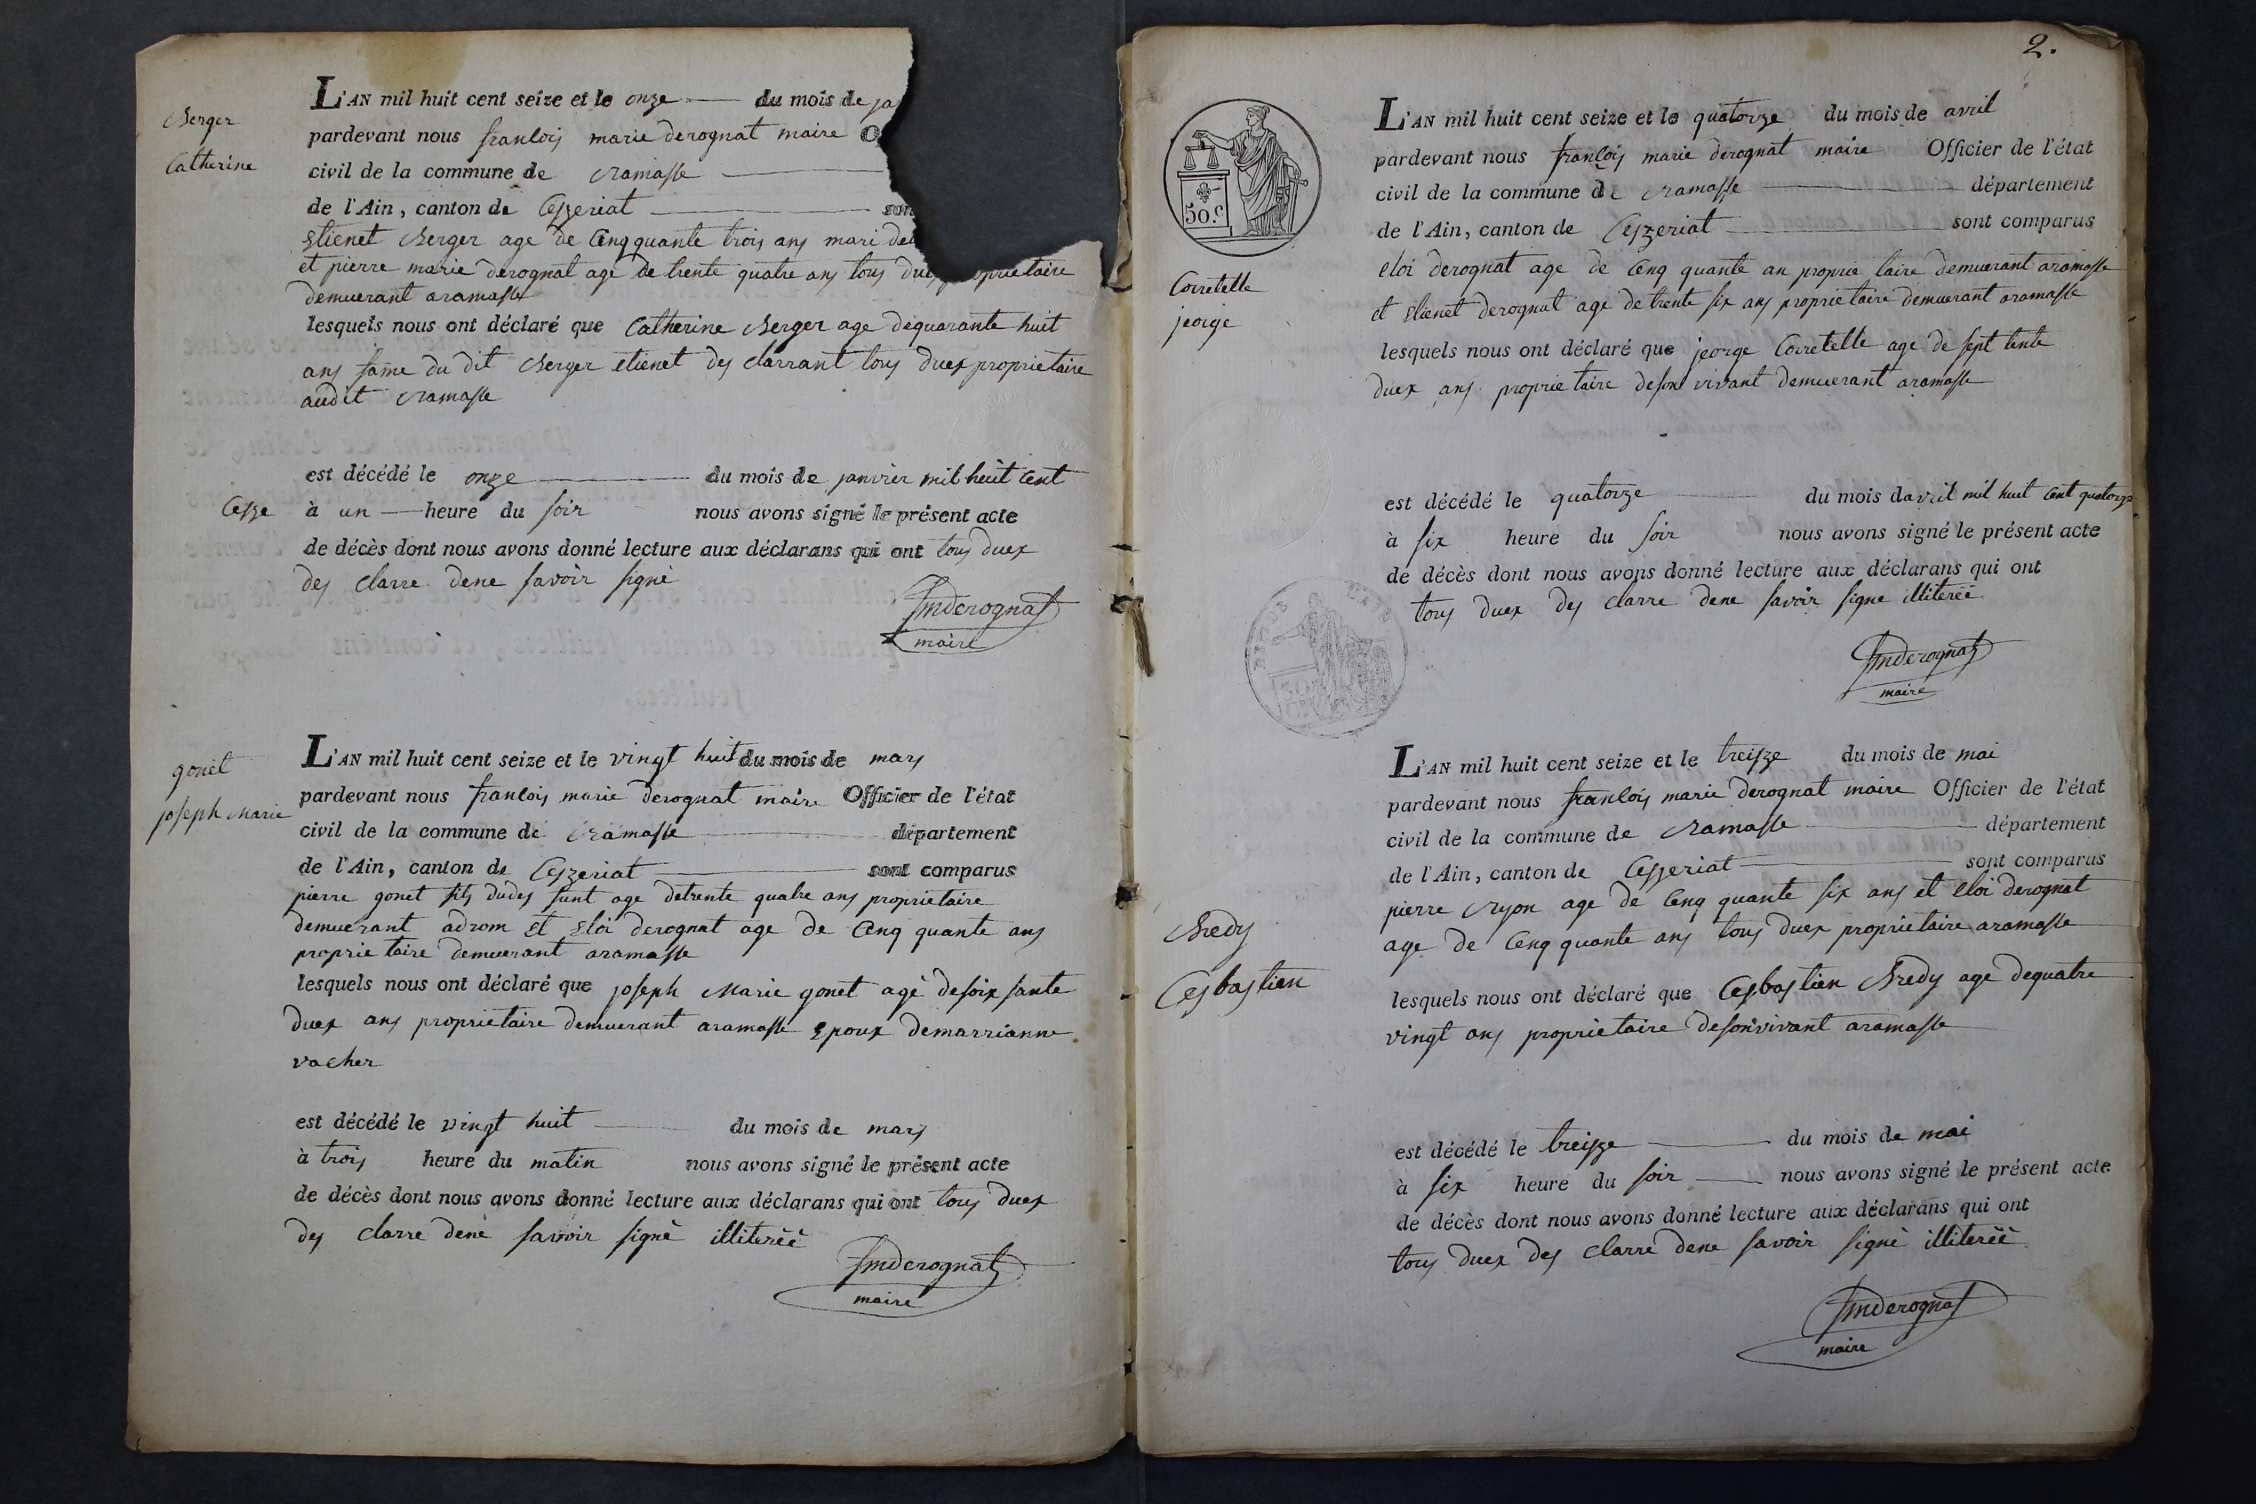 Berger
Catherine
L'AN mil huit cent seize et le onze du mois de ja
pardevant nous franlois marie derognat maire O
civil de la commune de ramasse
de l'Ain, canton de Ceyzeriat son
Etienet Berger age de Cinqquante trois ans mari de
et pierre marie derognat age de trente quatre ans tous duex proprietaire
demuerant aramasse
lesquels nous ont déclaré que Catherine Berger age dequarante huit
ans fame du dit Berger etienet des clarrant tous duex proprietaire
audit ramasse
est décédé le onze du mois de janvier mil huit Cent
Cesze à un heure du soir nous avons signé le présent acte
de décès dont nous avons donné lecture aux déclarans qui ont tous duex
des clarre dene savoir signé
fmderognat
maire
gonet
joseph Marie
L'AN mil huit cent seize et le vingt huit du mois de mars
pardevant nous franlois marie derognat maire Officier de l'état
civil de la commune de ramasse département
de l'Ain, canton de Ceyzeriat sont comparus
pierre gonet fils dudes funt age detrente quatre ans proprietaire
demuerant adrom et Eloi derognat age de Cinq quante ans
proprie taire demuerant aramasse
lesquels nous ont déclaré que joseph Marie gonet agé desoix sante
duex ans proprietaire demuerant aramasse epoux demarrianne
vacher
est décédé le vingt huit du mois de mars
à trois heure du matin nous avons signé le présent acte
de décès dont nous avons donné lecture aux déclarans qui ont tous duex
des clarre dene savoir signé illiteréé
fmderognat
maire
2.
50.c
Corretelle
jeorge
L'AN mil huit cent seize et le quatorze du mois de avril
pardevant nous françois marie derognat maire Officier de l'état
civil de la commune de ramasse département
de l'Ain, canton de Ceyzeriat sont comparus
eloi derognat age de Cinq quante an proprie taire demuerant aramasse
et Etienet derognat age de trente six ans proprietaire demuerant aramasse
lesquels nous ont déclaré que jeorge Corretelle age de sept tente
duex ans proprie taire deson vivant demuerant aramasse
est décédé le quatorze du mois davril mil huit Cent quatorze
à six heure du soir nous avons signé le présent acte
de décès dont nous avons donné lecture aux déclarans qui ont
tous duex des clarre dene savoir signe illiteréé
fmderognat
maire
Bredy
Cesbastien
L'AN mil huit cent seize et le treisze du mois de mai
pardevant nous franlois marie derognat maire Officier de l'état
civil de la commune de ramasse département
de l'Ain, canton de Ceyzeriat sont comparus
pierre ryon age de Cinq quante six ans et eloi derognat
age de Cinq quante ans tous duex proprietaire aramasse
lesquels nous ont déclaré que Cesbastien Bredy age dequatre
vingt ans proprietaire desonvivant aramasse
est décédé le treisze du mois de mai
à six heure du soir nous avons signé le présent acte
de décès dont nous avons donné lecture aux déclarans qui ont
tous duex des clarre dene savoir signé illiteréé
fmderognat
maire